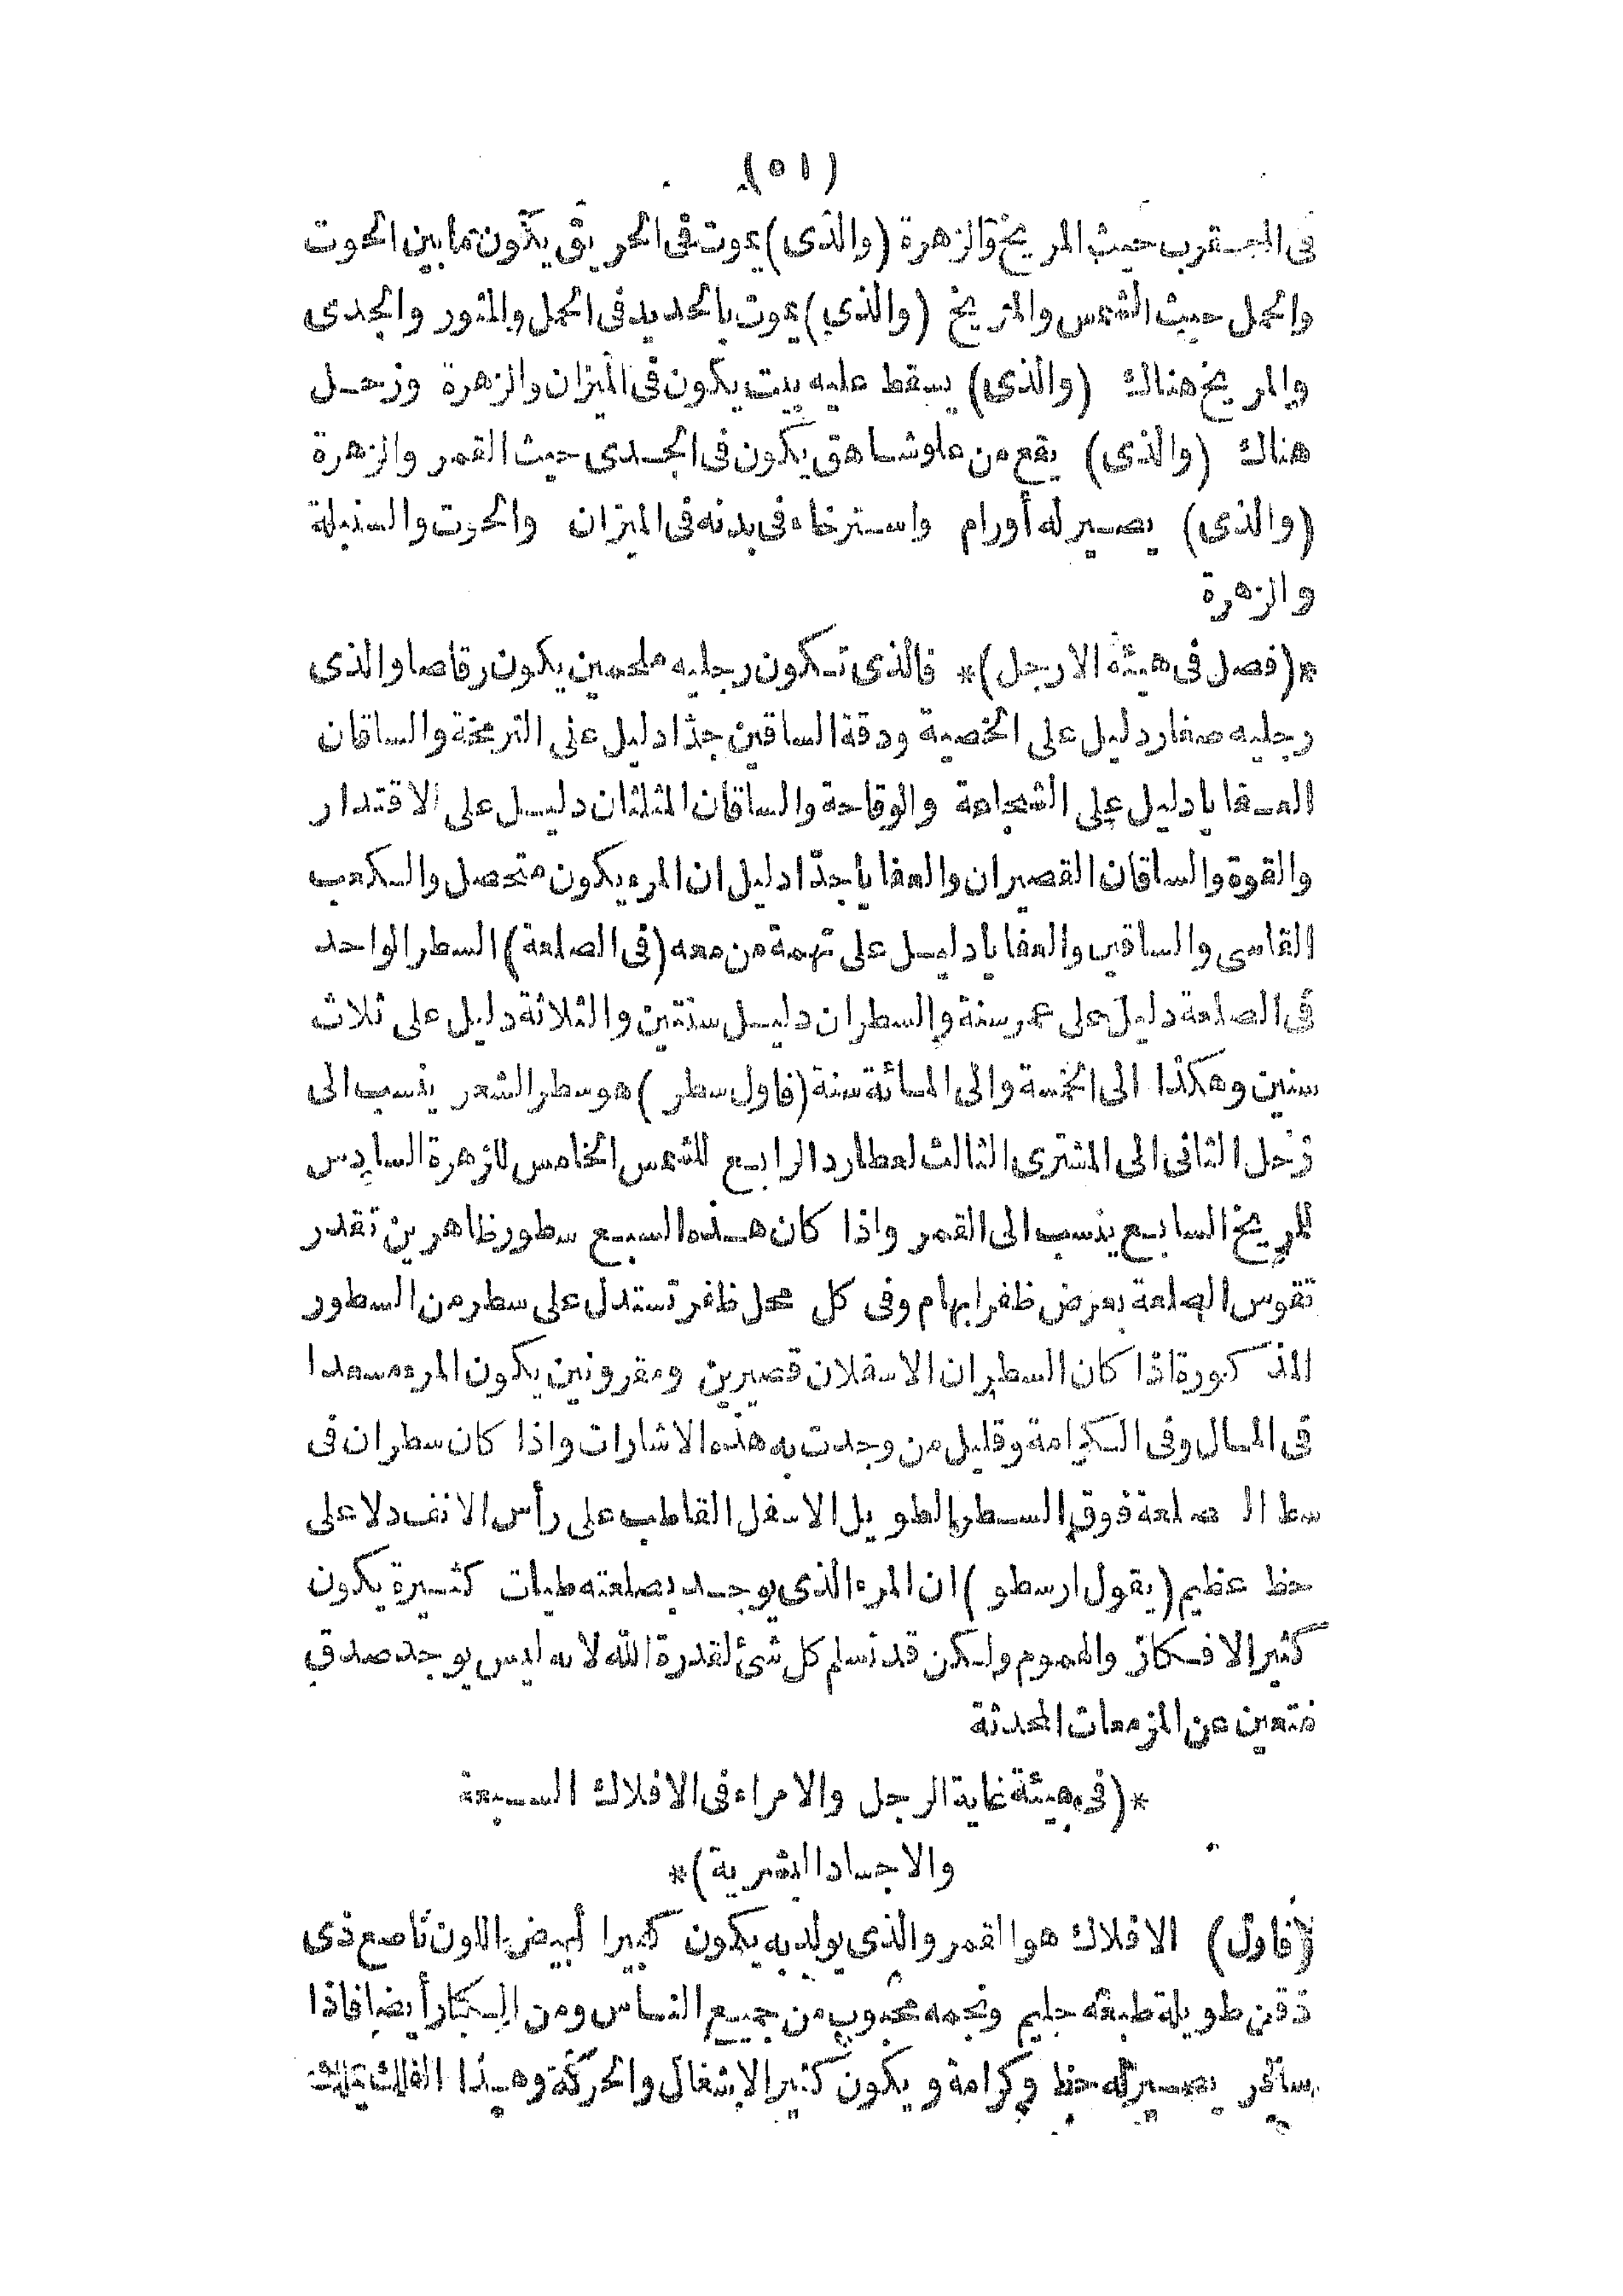 (٥١)
فى العـقرب حيث المريخ والزهرة (والذى) يموت فى الحريق يكون ما بين الحوت
والحمل حيث الشمس والمريخ (والذى) يموت بالحديد فى الحمل والثور والجدى
والمريخ هناك (والذى) يسقط عليه بيت يكون فى الميزان والزهرة وزحـل
هناك (والذى) يقع من علو شـاهق يكون فى الجـدى حيث القمر والزهرة
(والذى) يصـير له أورام واسـترخاء فى بدنه فى الميزان والحوت والسنبلة
والزهرة
*(فصل فى هيئة الارجل)* فالذى تـكون رجليه ملحمين يكون رقاصا والذى
رجليه صغار دليل على الخصية ودقة الساقين جدّا دليل على والساقان
دليل على الشجاعة والوقاحة والساقان دليـل على الاقتدار
والقوة والساقان القصيران جدّا دليل ان المرء يكون متحصل والـكعب
القاسى والساقين دليـل على تهمة من معه (فى الصلعة) السطر الواحد
فى الصلعة دليل على عمر سنة والسطران دليـل سنتين والثلاثة دليل على ثلاث
سنين وهكذا الى الخمسة والى المـائة سنة (فاول سطر) هو سطر الشعر ينسب الى
زحل الثانى الى المشترى الثالث لعطارد الرابـع للشمس الخامس للزهرة السادس
للمريخ السابـع ينسب الى القمر واذا كان هـذه السبـع سطور ظاهرين تقدر
تقوس الصلعة بعرض ظفر ابهام وفى كل محل ظفر تستدل على سطر من السطور
المذكورة اذا كان السطران الاسفلان قصيرين ومقرونين يكون المرء مسعدا
فى المـال وفى الـكرامة وقليل من وجدت به هذه الاشارات واذا كان سطران فى
سط الـ صلعة فوق السـطر الطويل الاسفل القاطب على رأس الانف دلا على
حظ عظيم (يقول ارسطو) ان المرء الذى يوجـد بصلعته طيات كثـيرة يكون
كثير الافـكار والهموم ولـكن قد نسلم كل شئ لقدرة الله لانه ليس يوجد صدق
متعين عن المزمعات المحدثة
*(فى هيئة غاية الرجل والامراء فى الافلاك السـبعة
والاجساد البشرية)*
(فاول) الافلاك هو القمر والذى يولد به يكون كبيرا أبيض اللون ناصع ذى
ذقن طويلة طبعه حليم ونجمه محبوب من جميـع النـاس ومن الـكبار أيضا فاذا
سافر يصـير له حظ وكرامة ويكون كثير الاشغال والحركة وهـذا الفلك